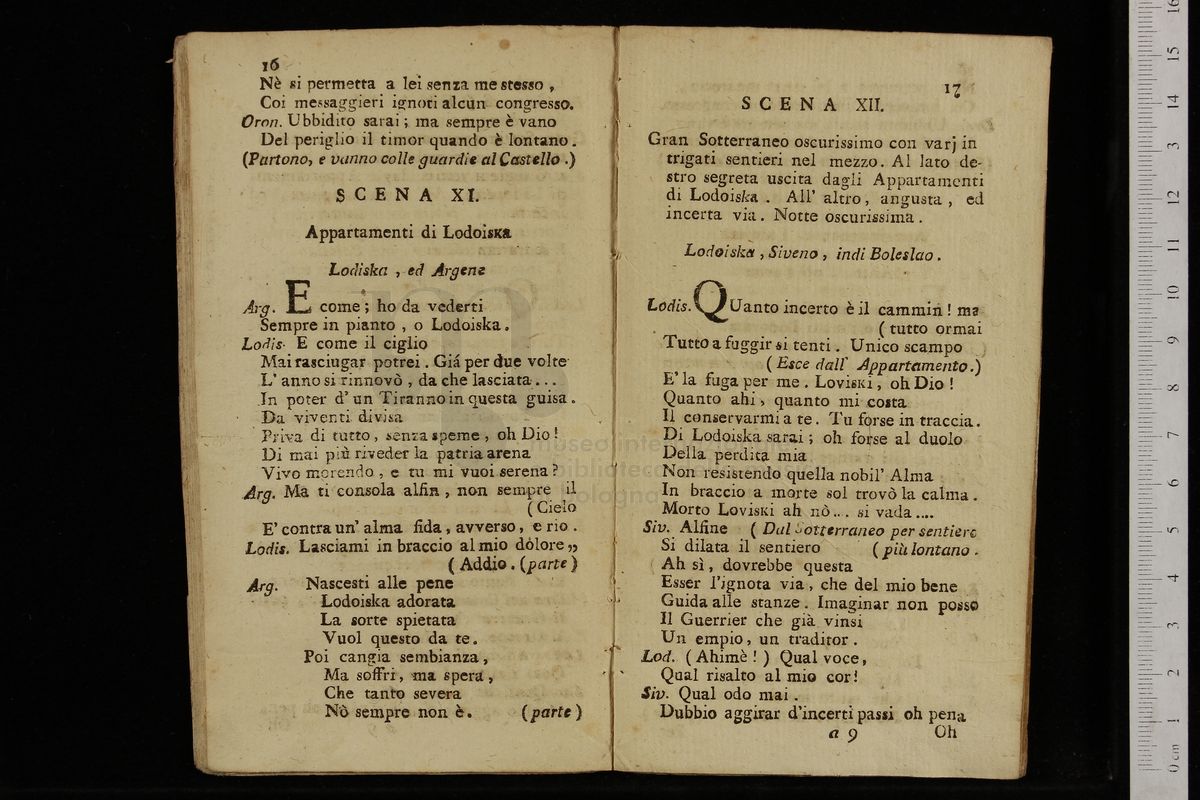 16
Nè si permetta a lei senza me stesso ,
Coi messaggieri ignoti alcun congresso.
Oron. Ubbidito sarai ; ma sempre è vano
Del periglio il timor quando è lontano .
(Partono, e vanno colle guardie al Castello .)
SCENA XI.
Appartamenti di Lodoiska
Lodiska , ed Argene
Arg. E come ; ho da vederti
Sempre in pianto , o Lodoiska .
Lodis. E come il ciglio
Mai rasciugar potrei . Giá per due volte
L' anno si rinnovò , da che lasciata . . .
In poter d' un Tiranno in questa guisa .
Da viventi divisa
Priva di tutto , senza speme , oh Dio !
Di mai più riveder la patria arena
Vivo morendo , e tu mi vuoi serena ?
Arg. Ma ti consola alfin , non sempre il
( Cielo
E' contra un' alma fida , avverso , e rio .
Lodis. Lasciami in braccio al mio dolore „
( Addio . (parte )
Arg. Nascesti alle pene
Lodoiska adorata
La sorte spietata
Vuol questo da te .
Poi cangia sembianza ,
Ma soffri , ma spera ,
Che tanto severa
Nò sempre non è . (parte )
17
SCENA XII.
Gran Sotterraneo oscurissimo con varj in
trigati sentieri nel mezzo. Al lato de-
stro segreta uscita dagli Appartamenti
di Lodoiska . All' altro , angusta , ed
incerta via . Notte oscurissima .
Lodoiska , Siveno , indi Boleslao .
Lodis. QUanto incerto è il cammin ! ma
( tutto ormai
Tutto a fuggir si tenti . Unico scampo
( Esce dall' Appartamento .)
E' la fuga per me . Loviski , oh Dio !
Quanto ahi , quanto mi costa
Il conservarmi a te . Tu forse in traccia .
Di Lodoiska sarai ; oh forse al duolo
Della perdita mia
Non resistendo quella nobil' Alma
In braccio a morte sol trovò la calma .
Morto Loviski ah nò . . . si vada . . . .
Siv. Alfine ( Dal Sotterraneo per sentiere
Si dilata il sentiero (più lontano .
Ah sì , dovrebbe questa
Esser l'ignota via , che del mio bene
Guida alle stanze . Imaginar non posso
Il Guerrier che già vinsi
Un empio , un traditor .
Lod. ( Ahimè ! ) Qual voce ,
Qual risalto al mio cor !
Siv. Qual odo mai .
Dubbio aggirar d'incerti passi oh pena
a 9 Oh